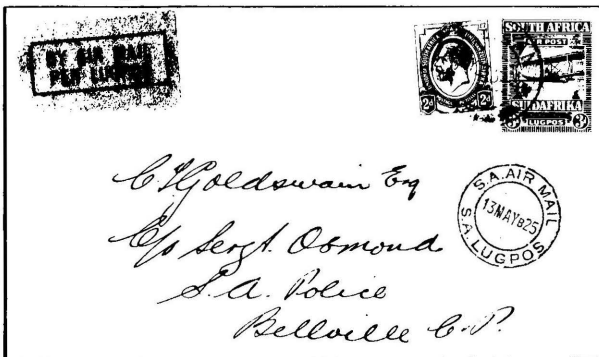 BY AIR MAIL
PER LUGPOS
2d 2d
SOUTH AFRICA
AIR POST
SUIDAFRIKA
3d LUGPOS 3d
C. H. Goldswain Esq
C/o Sergt. Osmond
S. A. Police
Bellville C. P.
S.A. AIR MAIL
13 MAY 25
S.A. LUGPOS